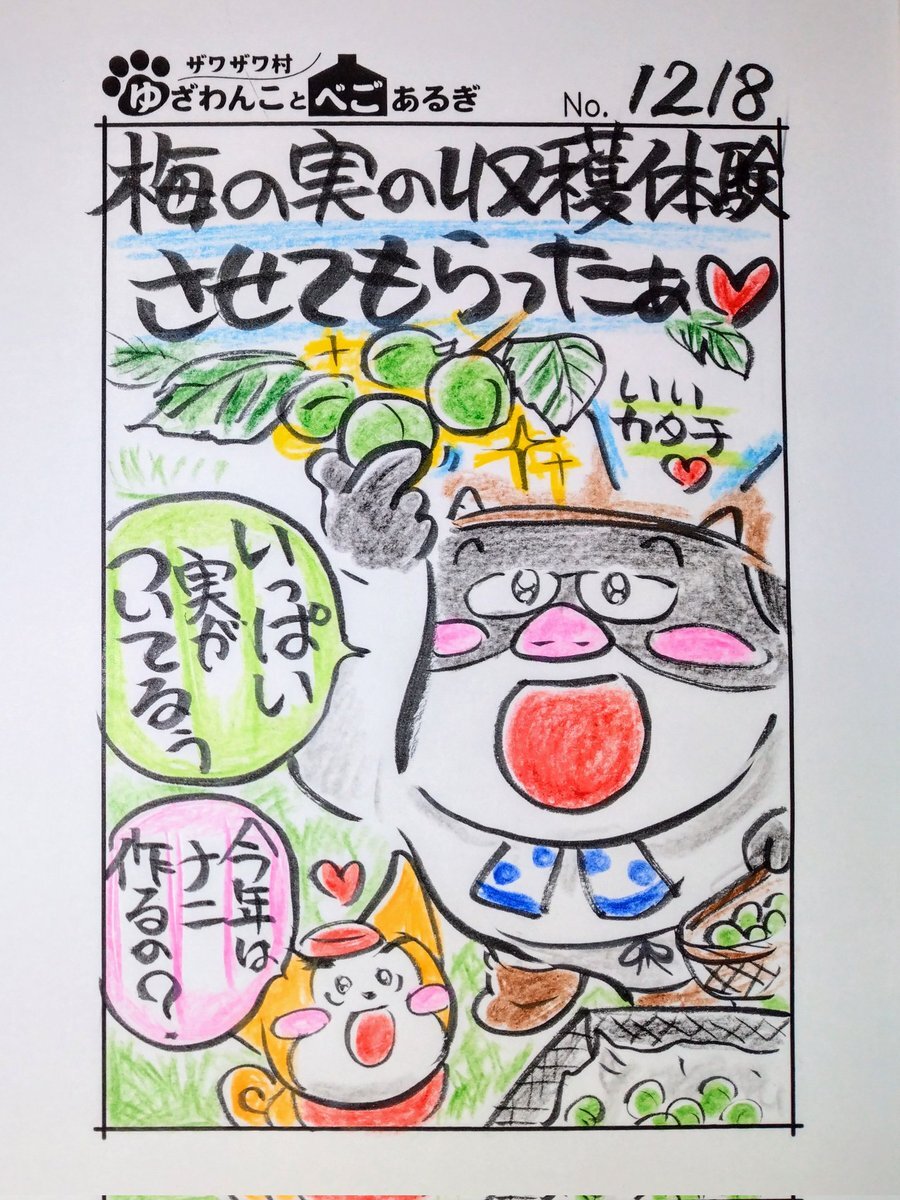 ザワザワ村
ゆざわんことべごあるぎ
No. 1218
梅の実の収穫体験
させてもらったぁ
いい
カタチ
いっぱい
実が
ついてるぅ
今年は
ナニ
作るの?